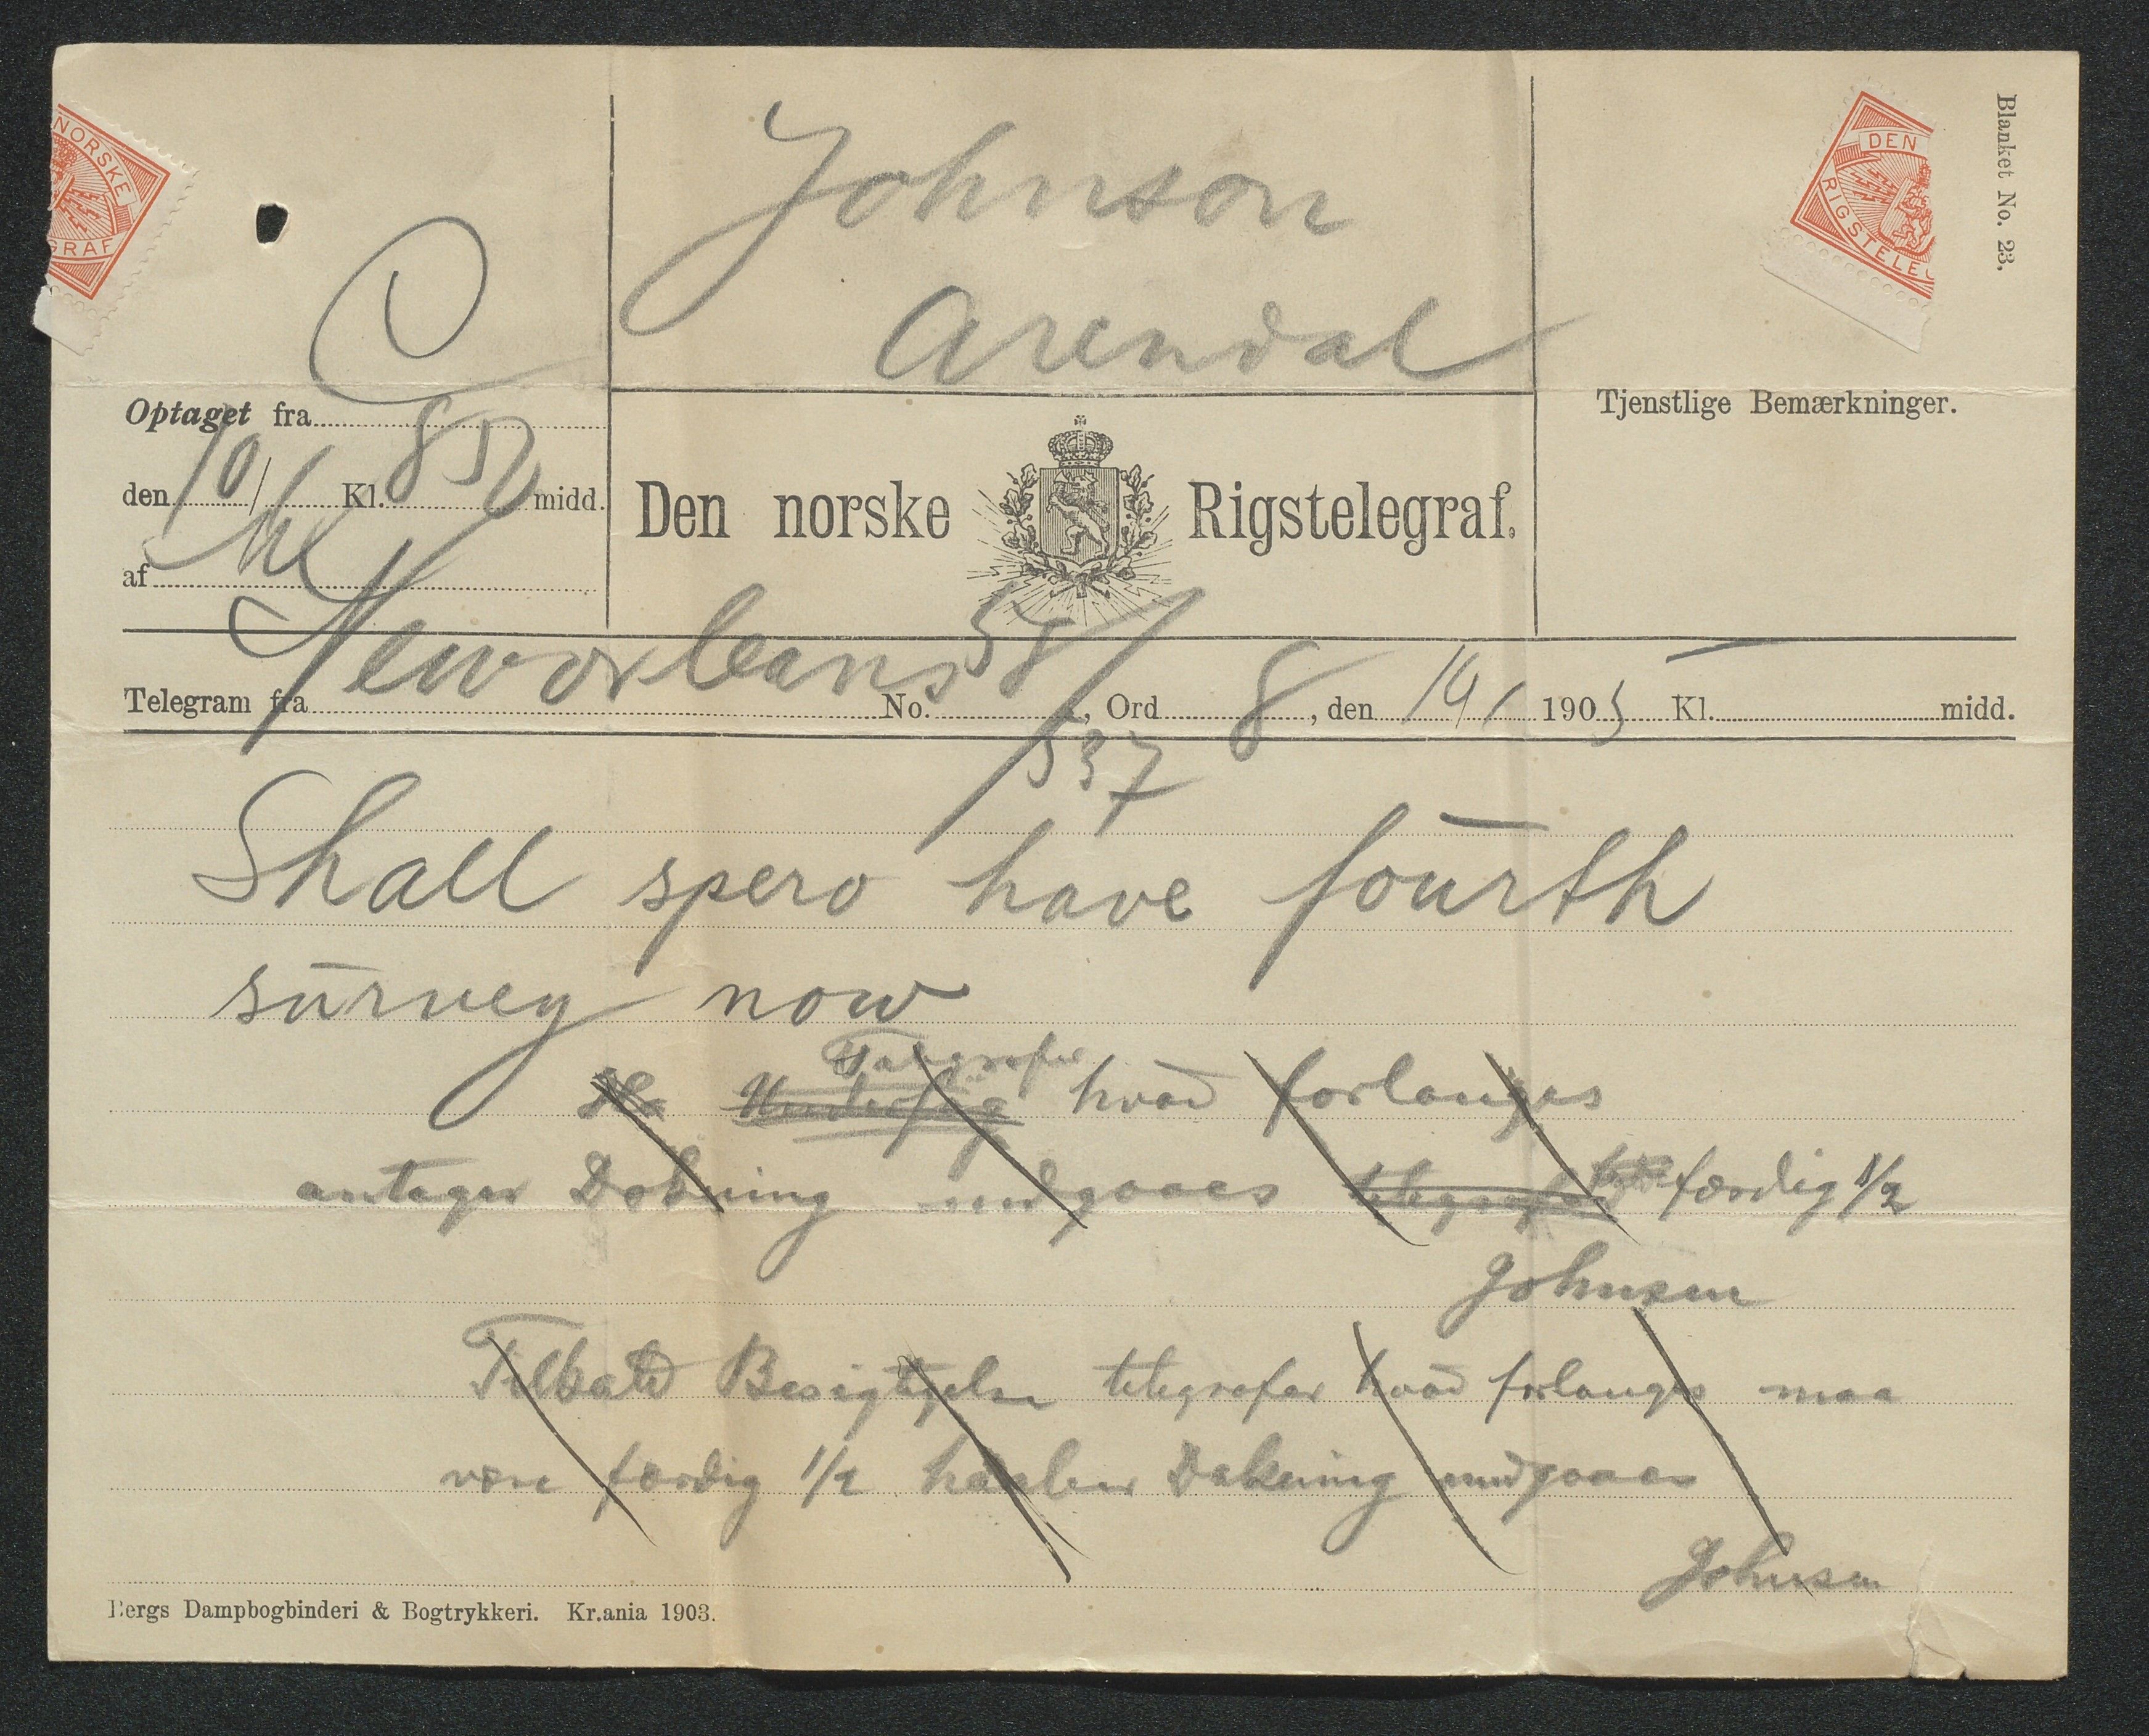 NORSKE
GRAF
DEN
RIGSTELEG
Blanket No. 23.
Johnson
Arendal
Optaget fra C
den 10/1 Kl. 850 midd.
af
Den norske Rigstelegraf.
Tjenstlige Bemærkninger.
Telegram fra Neworleans No. 58/537, Ord 8, den 19/ 1905 Kl. midd.
Shall spero have fourth
survey now
Telegrafer
hvad forlanges
antager Dokning undgaaes telegrafer færdig 1/2
Johnsen
Tilbad Besigtigelse telegrafer hvad forlanges maa
være færdig 1/2 haaber Dokning undgaaes
Johnsen
Bergs Dampbogbinderi & Bogtrykkeri. Kr.ania 1903.